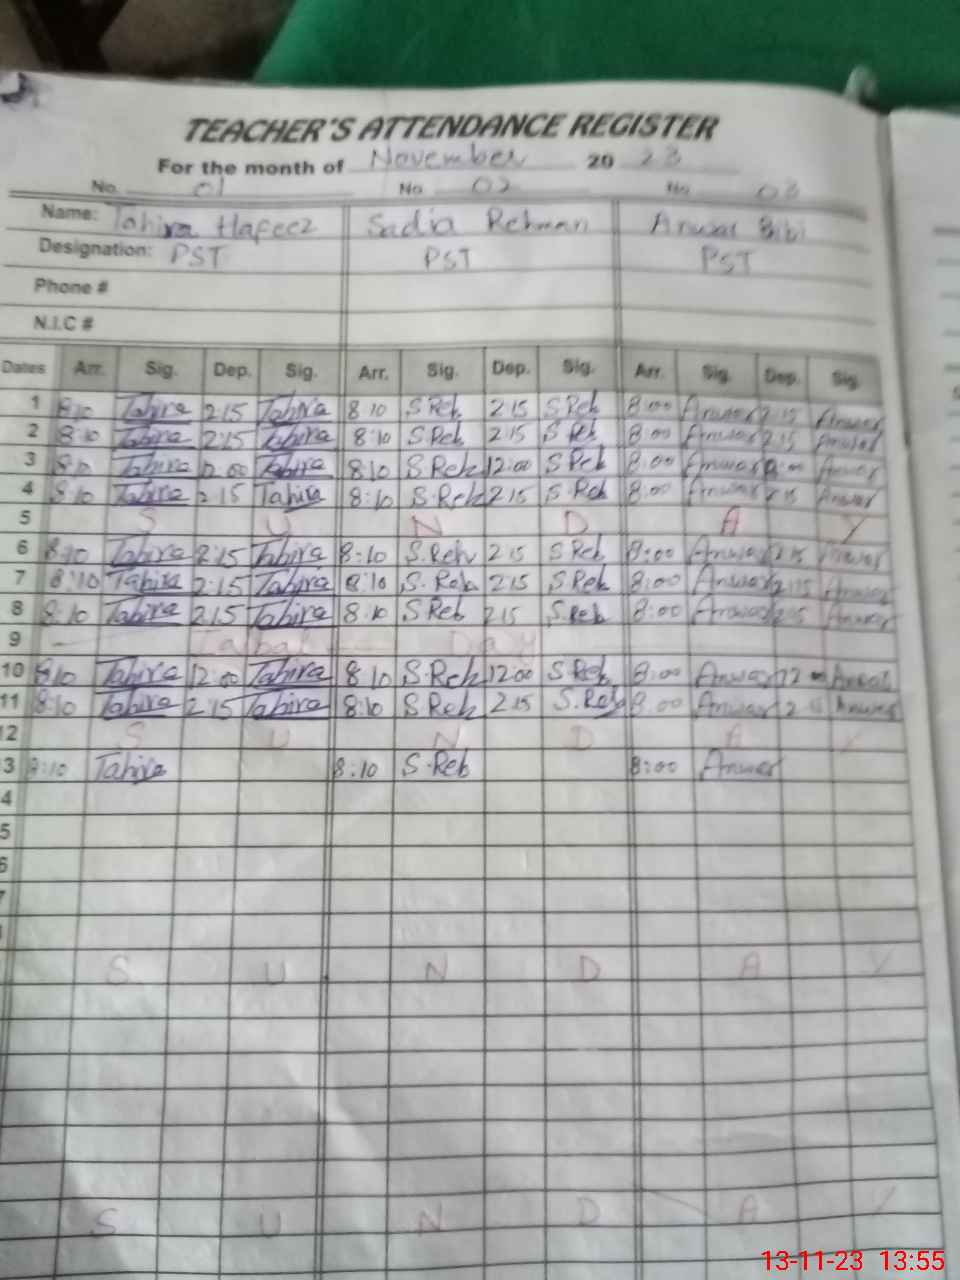 TEACHER'S ATTENDANCE REGISTER
For the month of November 20 23
No 01 No 02 No 03
Name: Tahira Hafeez Sadia Rehman Anwar Bibi
Designation: PST PST PST
Phone #
N.I.C #
Dates Arr. Sig. Dep. Sig. Arr. Sig. Dep. Sig. Arr. Sig. Dep. Sig
1 8:10 Tahira 2:15 Tahira 8:10 S Reh 2:15 S Reh 8:00 Anwar 2:15 Anwar
2 8:10 Tahira 2:15 Tahira 8:10 S Reh 2:15 S Reh 8:00 Anwar 2:15 Anwar
3 8:10 Tahira 12:00 Tahira 8:10 S Reh 12:00 S Reh 8:00 Anwar 12:00 Anwar
4 8:10 Tahira 2:15 Tahira 8:10 S.Reh 2:15 S.Reh 8:00 Anwar 2:15 Anwar
5 S U N D A Y
6 8:10 Tahira 2:15 Tahira 8:10 S.Reh 2:15 S Reh 8:00 Anwar 2:15 Anwar
7 8:10 Tahira 2:15 Tahira 8:10 S.Reh 2:15 S Reh 8:00 Anwar 2:15 Anwar
8 8:10 Tahira 2:15 Tahira 8:10 S Reh 2:15 S.Reh 8:00 Anwar 2:15 Anwar
9 Iqbal Day
10 8:10 Tahira 12:00 Tahira 8:10 S.Reh 12:00 S.Reh 8:00 Anwar 12:00 Anwar
11 8:10 Tahira 2:15 Tahira 8:10 S Reh 2:15 S.Reh 8:00 Anwar 2:15 Anwar
12 S U N D A Y
3 8:10 Tahira 8:10 S.Reh 8:00 Anwar
4
5
6
7
S U N D A Y
S U N D A Y
13-11-23 13:55